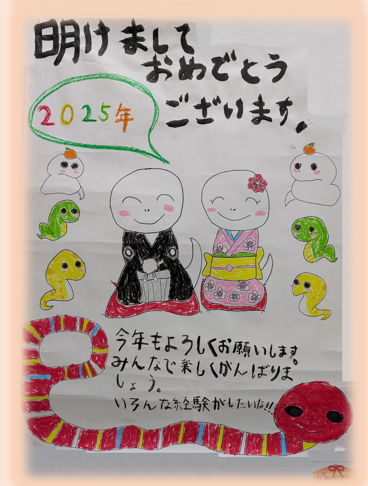 明けまして
おめでとう
ございます。
2025年
今年もよろしくお願いします。
みんなで楽しくがんばりま
しょう。
いろんな経験がしたいな!!